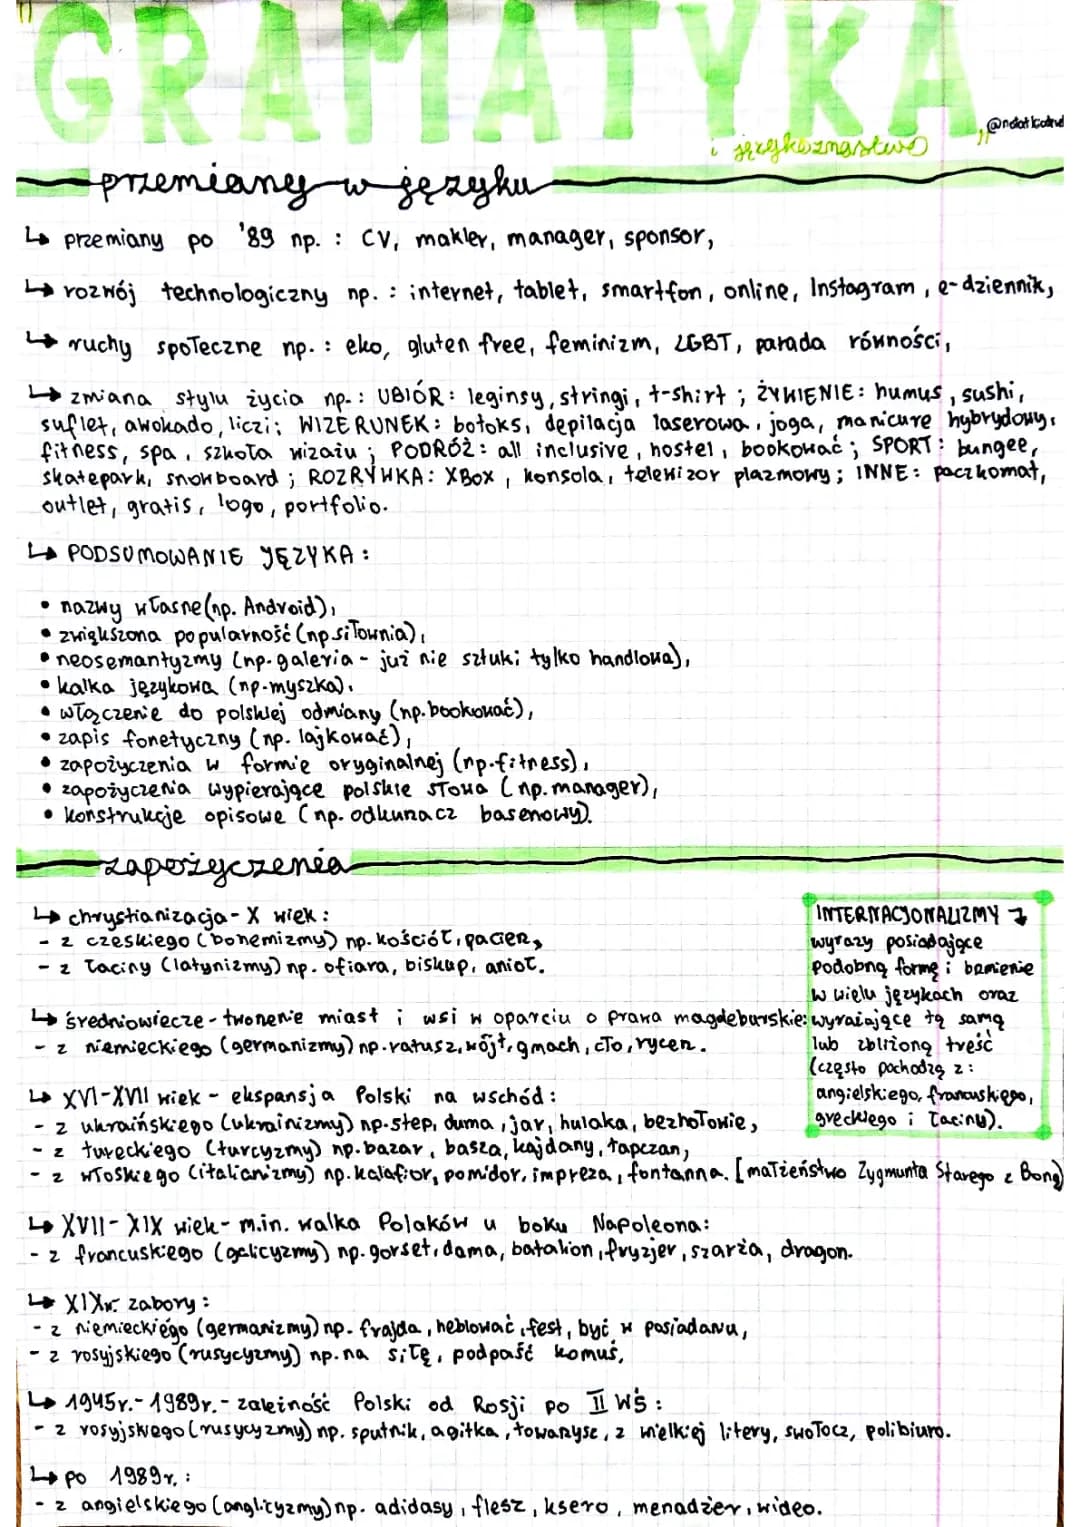 GRAMATYKA
i językoznastwo
przemiany w języku
↳ przemiany po '89 np. : CV, makler, manager, sponsor,
↳ rozwój technologiczny np. : internet, tablet, smartfon, online, Instagram, e-dziennik,
↳ ruchy społeczne np. : eko, gluten free, feminizm, LGBT, parada równości,
↳ zmiana stylu życia np. : UBIÓR: leginsy, stringi, t-shirt ; ŻYWIENIE: humus, sushi,
suflet, awokado, liczi; WIZERUNEK: botoks, depilacja laserowa, joga, manicure hybrydowy,
fitness, spa, szkoła wizażu ; PODRÓŻ: all inclusive, hostel, bookować ; SPORT: bungee,
skatepark, snowboard ; ROZRYWKA: XBox, konsola, telewizor plazmowy ; INNE: paczkomat,
outlet, gratis, logo, portfolio.
↳ PODSUMOWANIE JĘZYKA :
• nazwy własne (np. Android),
• zwiększona popularność (np. siłownia),
• neosemantyzmy (np. galeria - już nie sztuki tylko handlowa),
• kalka językowa (np. myszka),
• włączenie do polskiej odmiany (np. bookować),
• zapis fonetyczny (np. lajkować),
• zapożyczenia w formie oryginalnej (np. fitness),
• zapożyczenia wypierające polskie słowa (np. manager),
• konstrukcje opisowe (np. odkurzacz basenowy).
zapożyczenia
↳ chrystianizacja - X wiek :
- z czeskiego (bohemizmy) np. kościół, pacierz,
- z łaciny (latynizmy) np. ofiara, biskup, anioł.
INTERNACJONALIZMY
wyrazy posiadające
podobną formę i brzmienie
w wielu językach oraz
wyrażające tą samą
lub zbliżoną treść
(często pochodzą z:
angielskiego, francuskiego,
greckiego i łaciny).
↳ średniowiecze - tworzenie miast i wsi w oparciu o prawa magdeburskie:
- z niemieckiego (germanizmy) np. ratusz, wójt, gmach, cło, rycerz.
↳ XVI-XVII wiek - ekspansja Polski na wschód :
- z ukraińskiego (ukrainizmy) np. step, duma, jar, hulaka, bezhołowie,
- z tureckiego (turcyzmy) np. bazar, basza, kajdany, tapczan,
- z włoskiego (italianizmy) np. kalafior, pomidor, impreza, fontanna. [małżeństwo Zygmunta Starego z Boną]
↳ XVII - XIX wiek - m.in. walka Polaków u boku Napoleona:
- z francuskiego (galicyzmy) np. gorset, dama, batalion, fryzjer, szarża, dragon.
↳ XIXw. zabory :
- z niemieckiego (germanizmy) np. frajda, heblować, fest, być w posiadaniu,
- z rosyjskiego (rusycyzmy) np. na siłę, podpaść komuś,
↳ 1945r. - 1989r. - zależność Polski od Rosji po II WŚ :
- z rosyjskiego (rusycyzmy) np. sputnik, agitka, towarzysz, z wielkiej litery, swołocz, polibiuro.
↳ po 1989r. :
- z angielskiego (anglicyzmy) np. adidasy, flesz, ksero, menadżer, wideo.